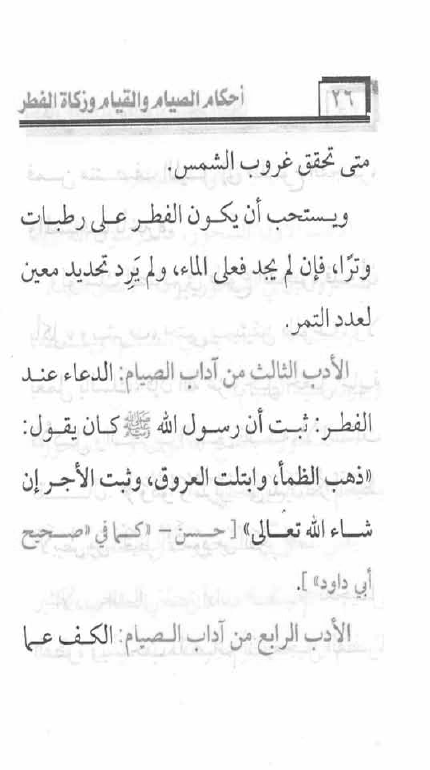 ٢٦
أحكام الصيام والقيام وزكاة الفطر
متى تحقق غروب الشمس.
ويستحب أن يكون الفطر على رطبات
وترًا، فإن لم يجد فعلى الماء، ولم يَرِد تحديد معين
لعدد التمر.
الأدب الثالث من آداب الصيام: الدعاء عند
الفطر: ثبت أن رسول الله ﷺ كان يقول:
«ذهب الظمأ، وابتلت العروق، وثبت الأجر إن
شاء الله تعالى» [حسن - «كما في «صحيح
أبي داود» ].
الأدب الرابع من آداب الصيام: الكف عما